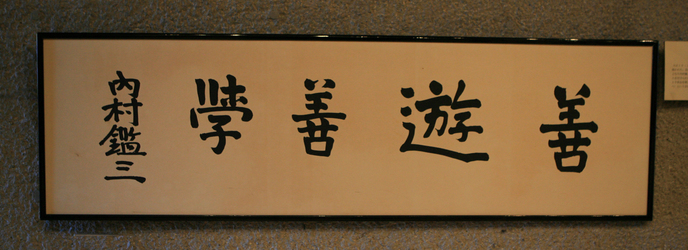 善遊善學
内村鑑三